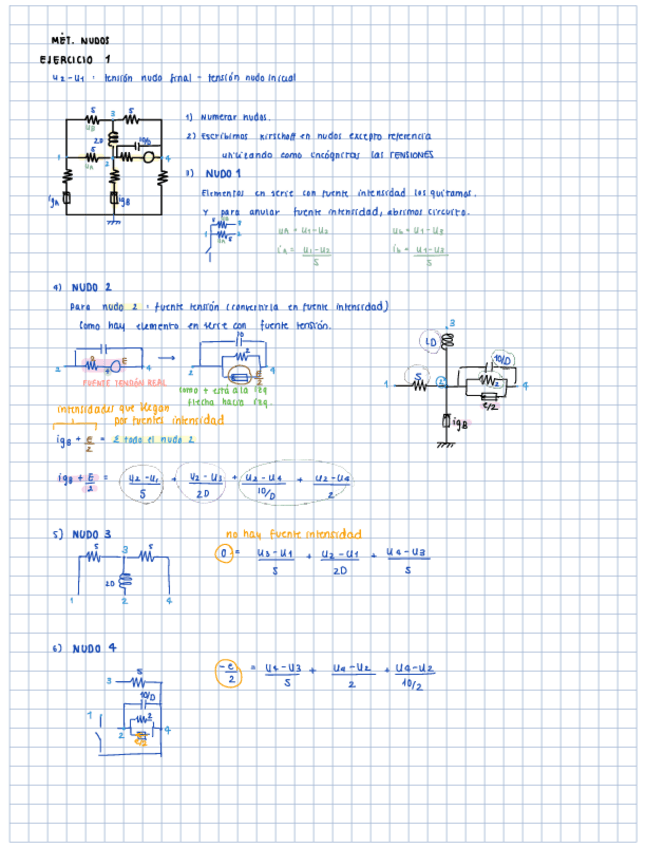 MÉT. NUDOS
EJERCICIO 1
u2-u1 : tensión nudo final - tensión nudo inicial
5 3 5
uB
2D 10/D
1 5 2 4
uA
igA igB
1) Numerar nudos.
2) Escribimos Kirschoff en nudos excepto referencia
utilizando como incógnitas las TENSIONES
3) NUDO 1
Elementos en serie con fuente intensidad los quitamos.
Y para anular fuente intensidad, abrimos circuito.
uA = u1-u2
iA = u1-u2 / 5
4) NUDO 2
Para nudo 2 : fuente tensión (convertirla en fuente intensidad)
Como hay elemento en serie con fuente tensión.
2 2 E 4
FUENTE TENSIÓN REAL
10
2 2 4
E/2
como + está a la izq
flecha hacia izq.
3
1 5 2 10/D 2 4
e/2
igB
intensidades que llegan
por fuentes intensidad
igB + E/2 = Σ todo el nudo 2
igB + E/2 = u2-u1 / 5 + u2-u3 / 2D + u2-u4 / 10/D + u2-u4 / 2
5) NUDO 3
5 3 5
2D
1 2 4
no hay fuente intensidad
0 = u3-u1 / 5 + u2-u1 / 2D + u4-u3 / 5
6) NUDO 4
3 5
10/D
1 2 2 4
-e/2 = u4-u3 / 5 + u4-u2 / 2 + u4-u2 / 10/2